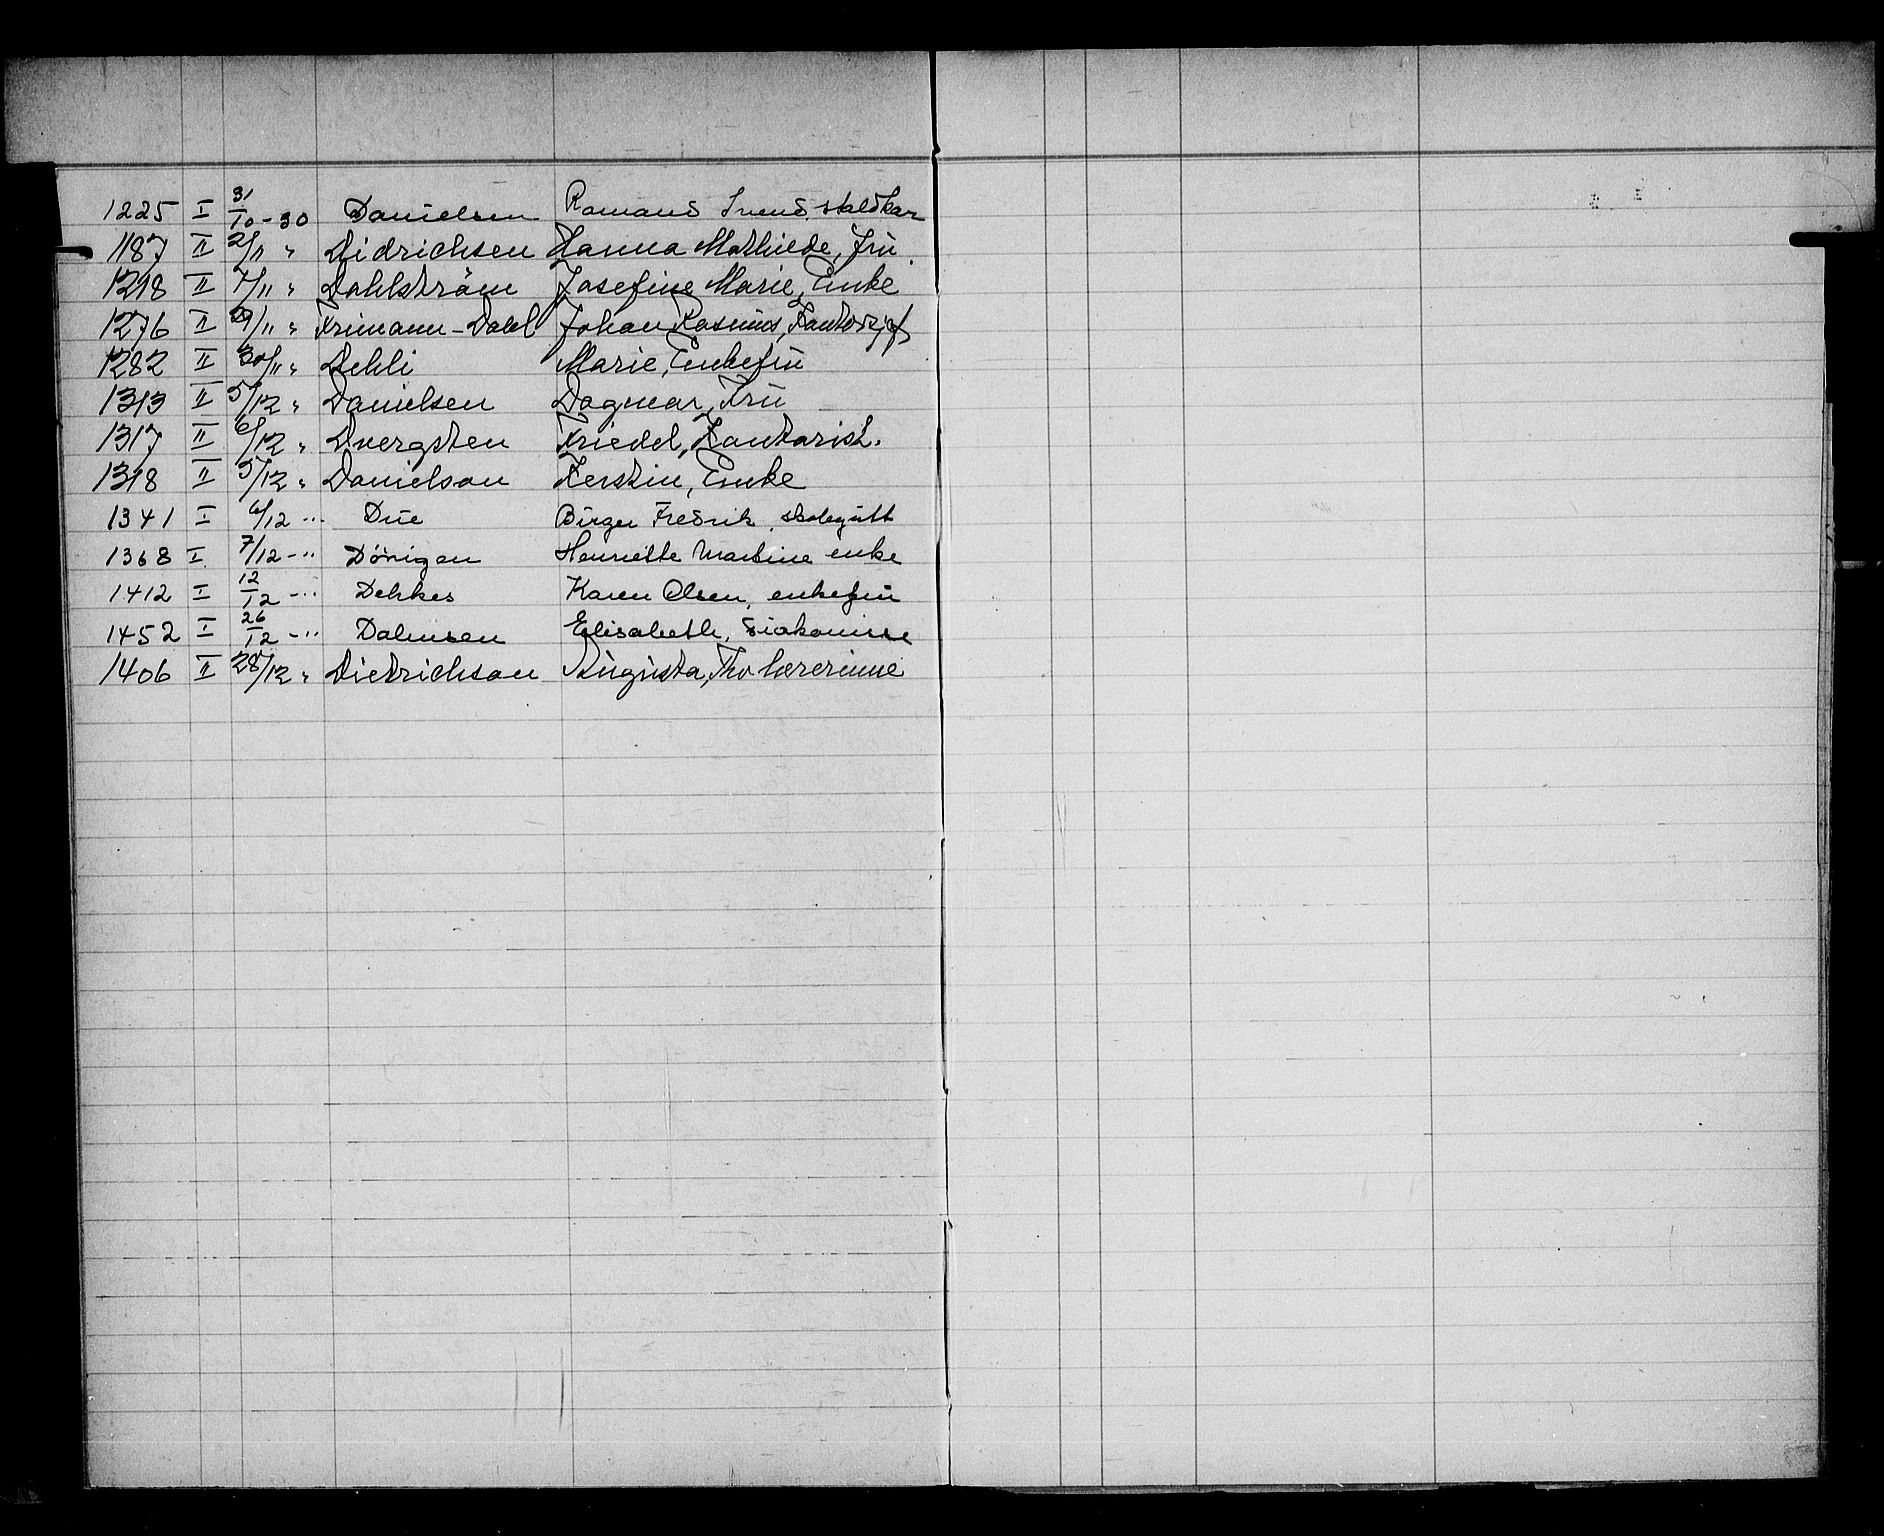 1225 I 31/10-30 Danielsen Romand Svend. staldkar
1187 II 2/11 " Didrichsen Hanna Mathilde, Fru.
1218 II 7/11 " Dahlström Josefine Marie, Enke
1276 II 29/11 " Frimann-Dahl Johan Rasmus,
1282 II 30/11 " Dehli Marie, Enkefrü
1313 II 5/12 " Danielsen Dagmar, Frü
1317 II 6/12 " Dvergsten Friedel, Kontorist.
1318 II 5/12 " Danielson Kerstin, Enke
1341 I 6/12 -" Due Birger Fredrik, skolegutt
1368 I. 7/12 -" Henriette Martine enke
1412 I 12/12 -" Dehkes Karen Olsen, enkefrü
1452 I 26/12 -" Elisabeth, diakonisse
1406 II 28/12 " Dietrichson Augusta, Fhv lærerinne